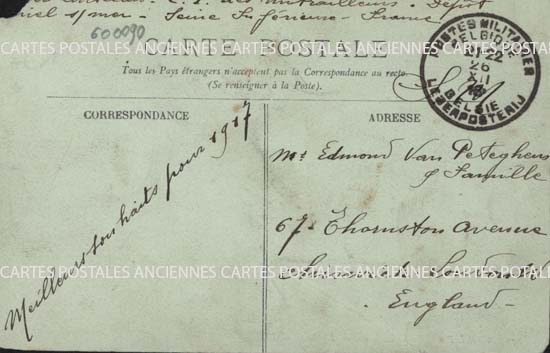 C. I. des Mitrailleurs. Dépôt
s/mer - Seine Inférieure - France
600090
CARTE POSTALE
Tous les Pays étrangers n'acceptent pas la Correspondance au recto
(Se renseigner à la Poste).
POSTES MILITAIRES
BELGIQUE
22
26
XII
16
BELGIE
LEGERPOSTERIJ
S.M.
CORRESPONDANCE
ADRESSE
Meilleurs souhaits pour 1917
Mr Edmond Van Peteghem
& famille
67. Thornston Avenue
England -
CARTES POSTALES ANCIENNES CARTES POSTALES ANCIENNES CARTES POSTALES